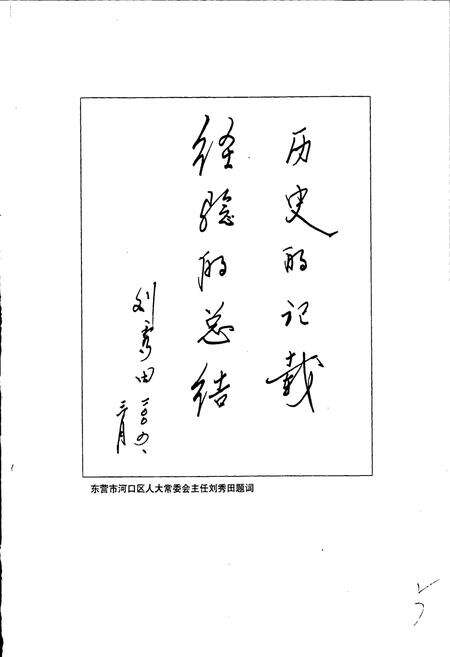 历史的记载
经验的总结
刘秀田 二〇〇四、
三月
东营市河口区人大常委会主任刘秀田题词